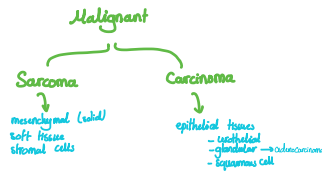 Malignant
Sarcoma
Carcinoma
mesenchymal (solid)
soft tissue
stromal cells
epithelial tissues
- urothelial
- glandular → adenocarcinoma
- squamous cell